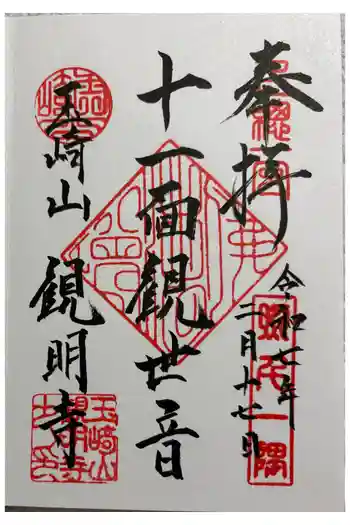 奉拝
令和七年
二月十七日
十一面観世音
玉崎山 観明寺
照于一隅
玉崎山
観明寺
之印